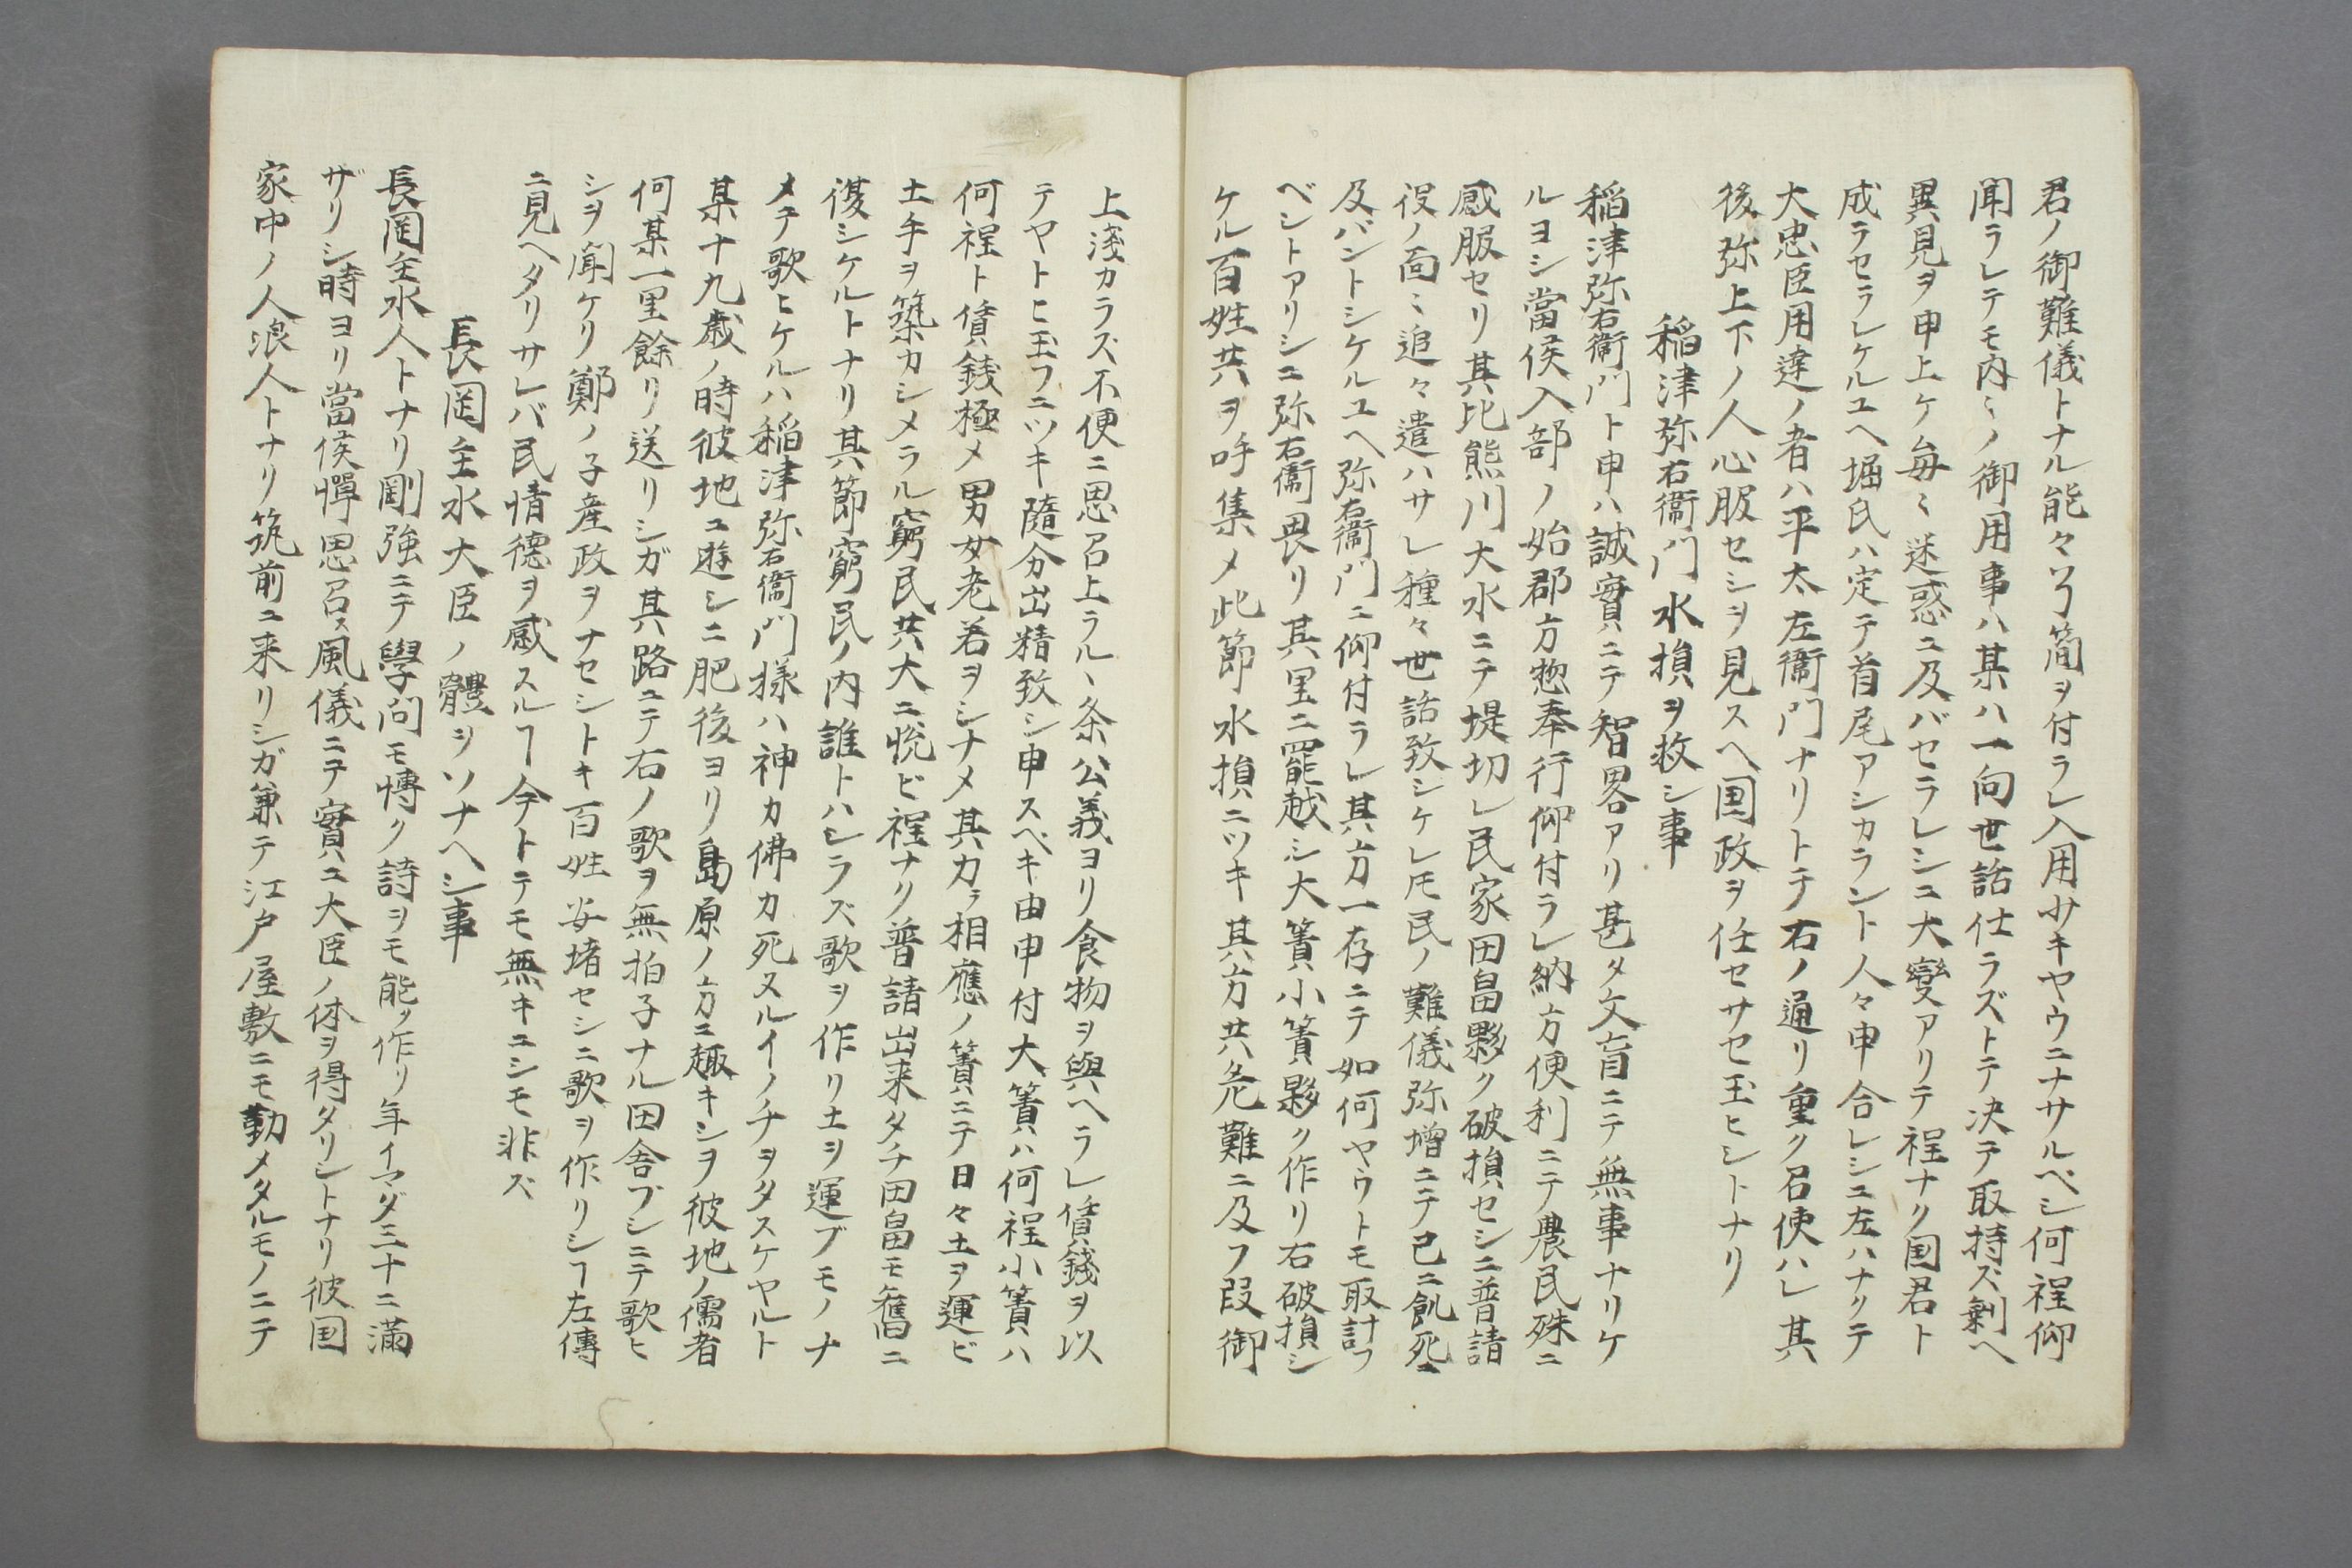 君ノ御難儀トナル能々了簡ヲ付ラレ入用少キヤウニナサルベシ何程仰
聞ラレテモ内〻ノ御用事ハ某ハ一向世話仕ラズトテ决テ取持ズ剰ヘ
異見ヲ申上ケ毎〻迷惑ニ及バセラレシユ大變アリテ程ナク国君ト
成ラセラレケルユヘ堀氏ハ定テ首尾アシカラント人々申合レシユ左ハナクテ
大忠臣用達ノ者ハ平太左衛門ナリトテ右ノ通リ重ク召使ハレ其
後弥上下ノ人心服セシヲ見スヘ国政ヲ任セサセ玉ヒシトナリ
稲津弥右衛門水損ヲ救シ事
稲津弥右衛門ト申ハ誠實ニテ智畧アリ甚タ文盲ニテ無事ナリケ
ルヨシ當侯入部ノ始郡方惣奉行仰付ラレ納方便利ニテ農民殊ニ
感服セリ其比熊川大水ニテ堤切レ民家田畠夥ク破損セシニ普請
役ノ面〻追々遣ハサレ種々世話致シケレ𪜈民ノ難儀弥増ニテ已ニ飢死ニ
及バントシケルユヘ弥右衛門ニ仰付ラレ其方一存ニテ如何ヤウトモ取計フ
ベシトアリシニ弥右衛門畏リ其里ニ罷越シ大簣小簣夥ク作リ右破損シ
ケル百姓共ヲ呼集メ此節水損ニツキ其方共危難ニ及フ段御
上淺カラズ不便ニ思召上ラル、条公義ヨリ食物ヲ與ヘラレ賃錢ヲ以
テヤトヒ玉フニツキ隨分出精致シ申スベキ由申付大簣ハ何程小簣ハ
何程ト賃銭極メ男女老若ヲシナメ其力ヲ相應ノ簣ニテ日々土ヲ運ビ
土手ヲ築カシメラル窮民共大ニ悦ビ程ナク普請出来タチ田畠モ舊ニ
復シケルトナリ其節窮民ノ内誰トハシラズ歌ヲ作リ土ヲ運ブモノナ
メテ歌ヒケルハ稲津弥右衛門様ハ神カ佛カ死ヌルイノチヲタスケヤルト
某十九歳ノ時彼地ユ遊シニ肥後ヨリ島原ノ方ユ趣キシヲ彼地ノ儒者
何某一里餘リ送リシガ其路ユテ右ノ歌ヲ無拍子ナル田舎ブシニテ歌ヒ
シヲ聞ケリ鄭ノ子産政ヲナセシトキ百姓安堵セシニ歌ヲ作リシヿ左傳
ニ見ヘタリサレバ民情德ヲ感スルヿ今トテモ無キユシモ非ズ
長岡主水大臣ノ體ヲソナヘシ事
長岡主水人トナリ剛強ニテ學问モ博ク詩ヲモ能ク作リ年イマダ三十ニ滿
ザリシ時ヨリ當侯憚思召ス風儀ニテ實ユ大臣ノ体ヲ得タリシトナリ彼国
家中ノ人浪人トナリ筑前ユ来リシガ兼テ江戸屋敷ニモ勤メタルモノニテ